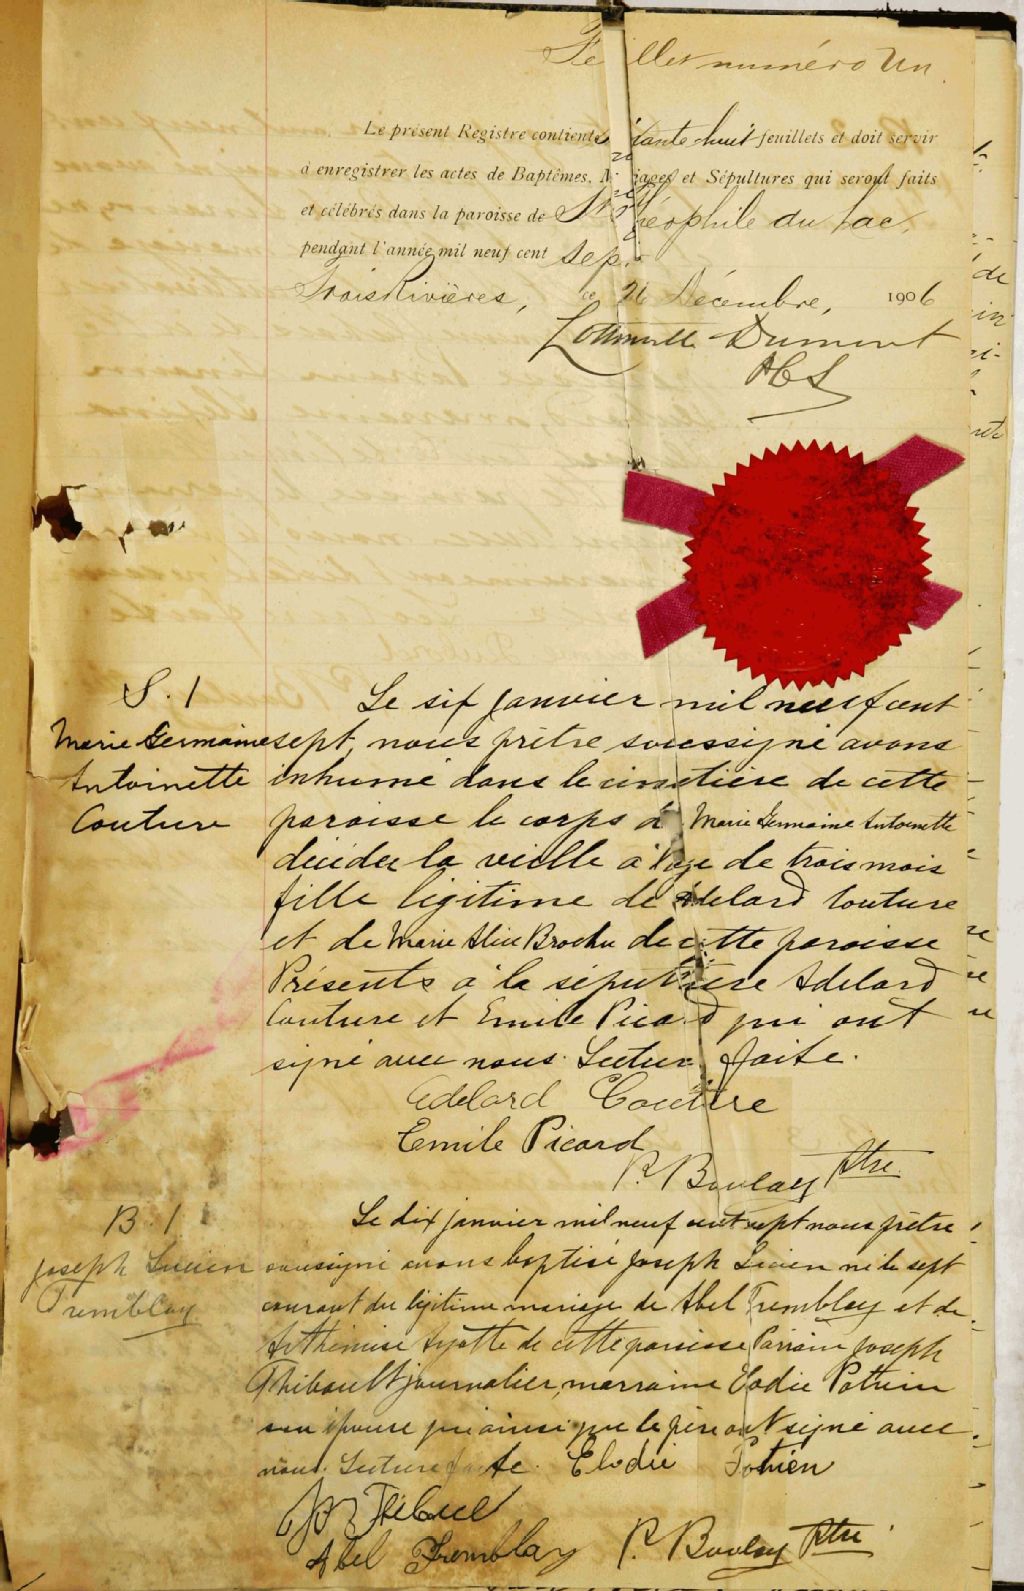 Feuillet numéro Un.
Le présent Registre contient soixante huit feuillets et doit servir
à enregistrer les actes de Baptêmes, Mariages et Sépultures qui seront faits
et célébrés dans la paroisse de St Théophile du Lac,
pendant l'année mil neuf cent sept.
Trois Rivières, ce 26 Décembre, 1906
Dumont
S. 1
Marie Germaine
Antoinette
Couture
Le six janvier mil neuf cent
sept, nous prêtre soussigné avons
inhumé dans le cimetière de cette
paroisse le corps de Marie Germaine Antoinette
décédée la veille à l'age de trois mois
fille légitime de Adelard Couture
et de Marie Alice Brochu de cette paroisse
Présents à la sépulture Adelard
Couture et Emile Picard qui ont
signé avec nous. Lecture faite.
Adelard Couture
Emile Picard
P. Boulay Ptre
B. 1
Joseph Lucien
Tremblay
Le dix janvier mil neuf cent sept nous prêtre
soussigné avons baptisé Joseph Lucien né le sept
courant du légitime mariage de Abel Tremblay et de
Arthémise Ayotte de cette paroisse Parrain Joseph
Thibault journalier, marraine Elodie Potvin
son épouse qui ainsi que le père ont signé avec
nous. Lecture faite. Elodie Potvien
Abel Tremblay P. Boulay Ptre